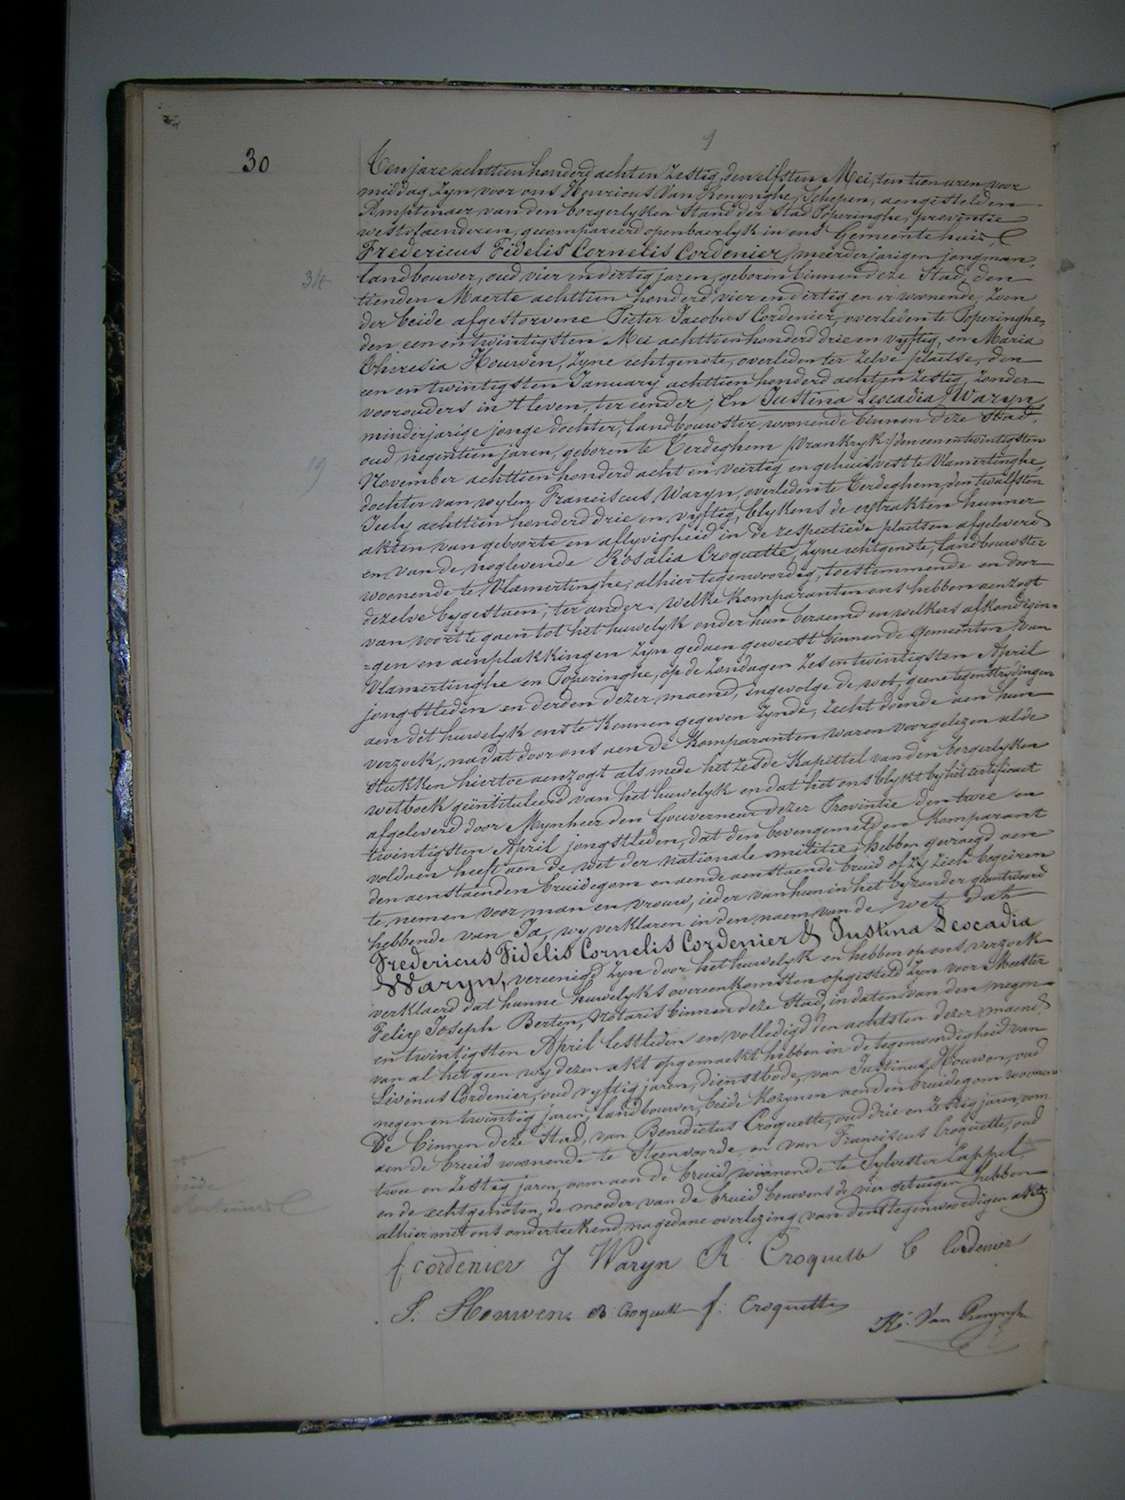 30
Ten jare achttien honderd acht en zestig, den elfsten Mei, ten tien uren voor
middag, zyn voor ons Henricus Van Renynghe, Schepen, aengestelden
Amptenaer van den borgerlyken Stand der Stad Poperinghe, provintie
westvlaenderen, gecompareerd openbaerlyk in ons Gemeentehuis
Fredericus Fidelis Cornelis Cordenier, meerderjarigen jongman,
34
landbouwer, oud vier en dertig jaren, geboren binnen deze Stad, den
tienden Maerte achttien honderd vier en dertig en er woonende, zoon
der beide afgestorvene Pieter Jacobus Cordenier, overleden te Poperinghe,
den een en twintigsten Mei achttien honderd drie en vyftig, en Maria
Theresia Houwen, zyne echtgenote, overleden ter zelve plaetse, den
een en twintigsten January achttien honderd acht en zestig, zonder
voorouders in 't leven, ter eender; En Justina Leocadia Waryn,
minderjarige jonge dochter, landbouwster, woonende binnen deze Stad,
19
oud negentien jaren, geboren te Terdeghem (Vrankryk) den een en twintigsten
November achttien honderd acht en veertig en gehuisvest te Vlamertinghe,
dochter van wylen Franciscus Waryn, overleden te Terdeghem, den twalfsten
July achttien honderd drie en vyftig, blykens de extrakten hunner
akten van geboorte en aflyvigheid in de respective plaetsen afgeleverd
en van de noglevende Rosalia Croquette, zyne echtgenote, landbouwster
woonende te Vlamertinghe, alhier tegenwoordig, toestemmende en door
dezelve bygestaen, ter ander. Welke komparanten ons hebben aenzogt
van voort te gaen tot het huwelyk onder hun beraemd en welkers afkondigin-
gen en aenplakkingen zyn gedaen geweest binnen de Gemeenten van
Vlamertinghe en Poperinghe, op de zondagen zes en twintigsten April
jongstleden en derden dezer maend, ingevolge de wet, geene tegenstrydingen
aen dit huwelyk ons te kennen gegeven zynde, recht doende aen hun
verzoek, na dat door ons aen de komparanten waren voorgelezen al de
stukken hiertoe aenzogt als mede het zesde kapittel van den borgerlyken
wetboek geïntituleerd van het huwelyk en dat het ons blykt by het certificaet
afgeleverd door Mynheer den Gouverneur dezer Provintie den twee en
twintigsten April jongstleden, dat den bovengemelden komparant
voldaen heeft aen de wet der nationale militie, hebben gevraegd aen
den aenstaenden bruidegom en aende aenstaende bruid of zy zich begeiren
te nemen voor man en vrouw, ieder van hun in het byzonder geantwoord
hebbende van Ja, wy verklaren in den naem van de wet dat
Fredericus Fidelis Cornelis Cordenier & Justina Leocadia
Waryn, vereenigd zyn door het huwelyk en hebben op ons verzoek
verklaerd dat hunne huwelyks overeenkomsten opgesteld zyn voor Meester
Felix Joseph Berten, Notaris binnen deze Stad, in daten van den negen
en twintigsten April lestleden en volledigd den achtsten dezer maend
van al het geen wy dezen akt opgemaekt hebben in de tegenwoordigheid van
Livinus Cordenier, oud vyftig jaren, dienstbode, van Justinus Houwen, oud
negen en twintig jaren, landbouwer, beide kozynen aen den bruidegom woonen
de binnen deze Stad, van Benedictus Croquette, oud drie en zestig jaren, oom
aen de bruid woonende te Steenvoorde, en van Franciscus Croquette, oud
twee en zestig jaren, oom aen de bruid, woonende te Sylvester Cappel,
en de echtgenoten, de moeder van de bruid benevens de vier getuigen hebben
alhier met ons onderteekend, na gedane overlezing van den tegenwoordigen akt
f cordenier J Waryn R Croquette L Cordenier
J. Houwen B Croquette f. Croquette
H. Van Renynghe